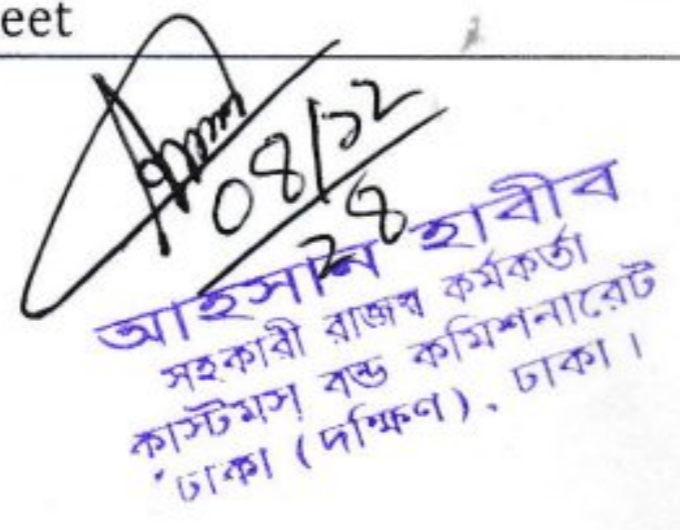 eet
০৪/১২
২৪
আহসান হাবীব
সহকারী রাজস্ব কর্মকর্তা
কাস্টমস্ বন্ড কমিশনারেট
ঢাকা (দক্ষিণ), ঢাকা।